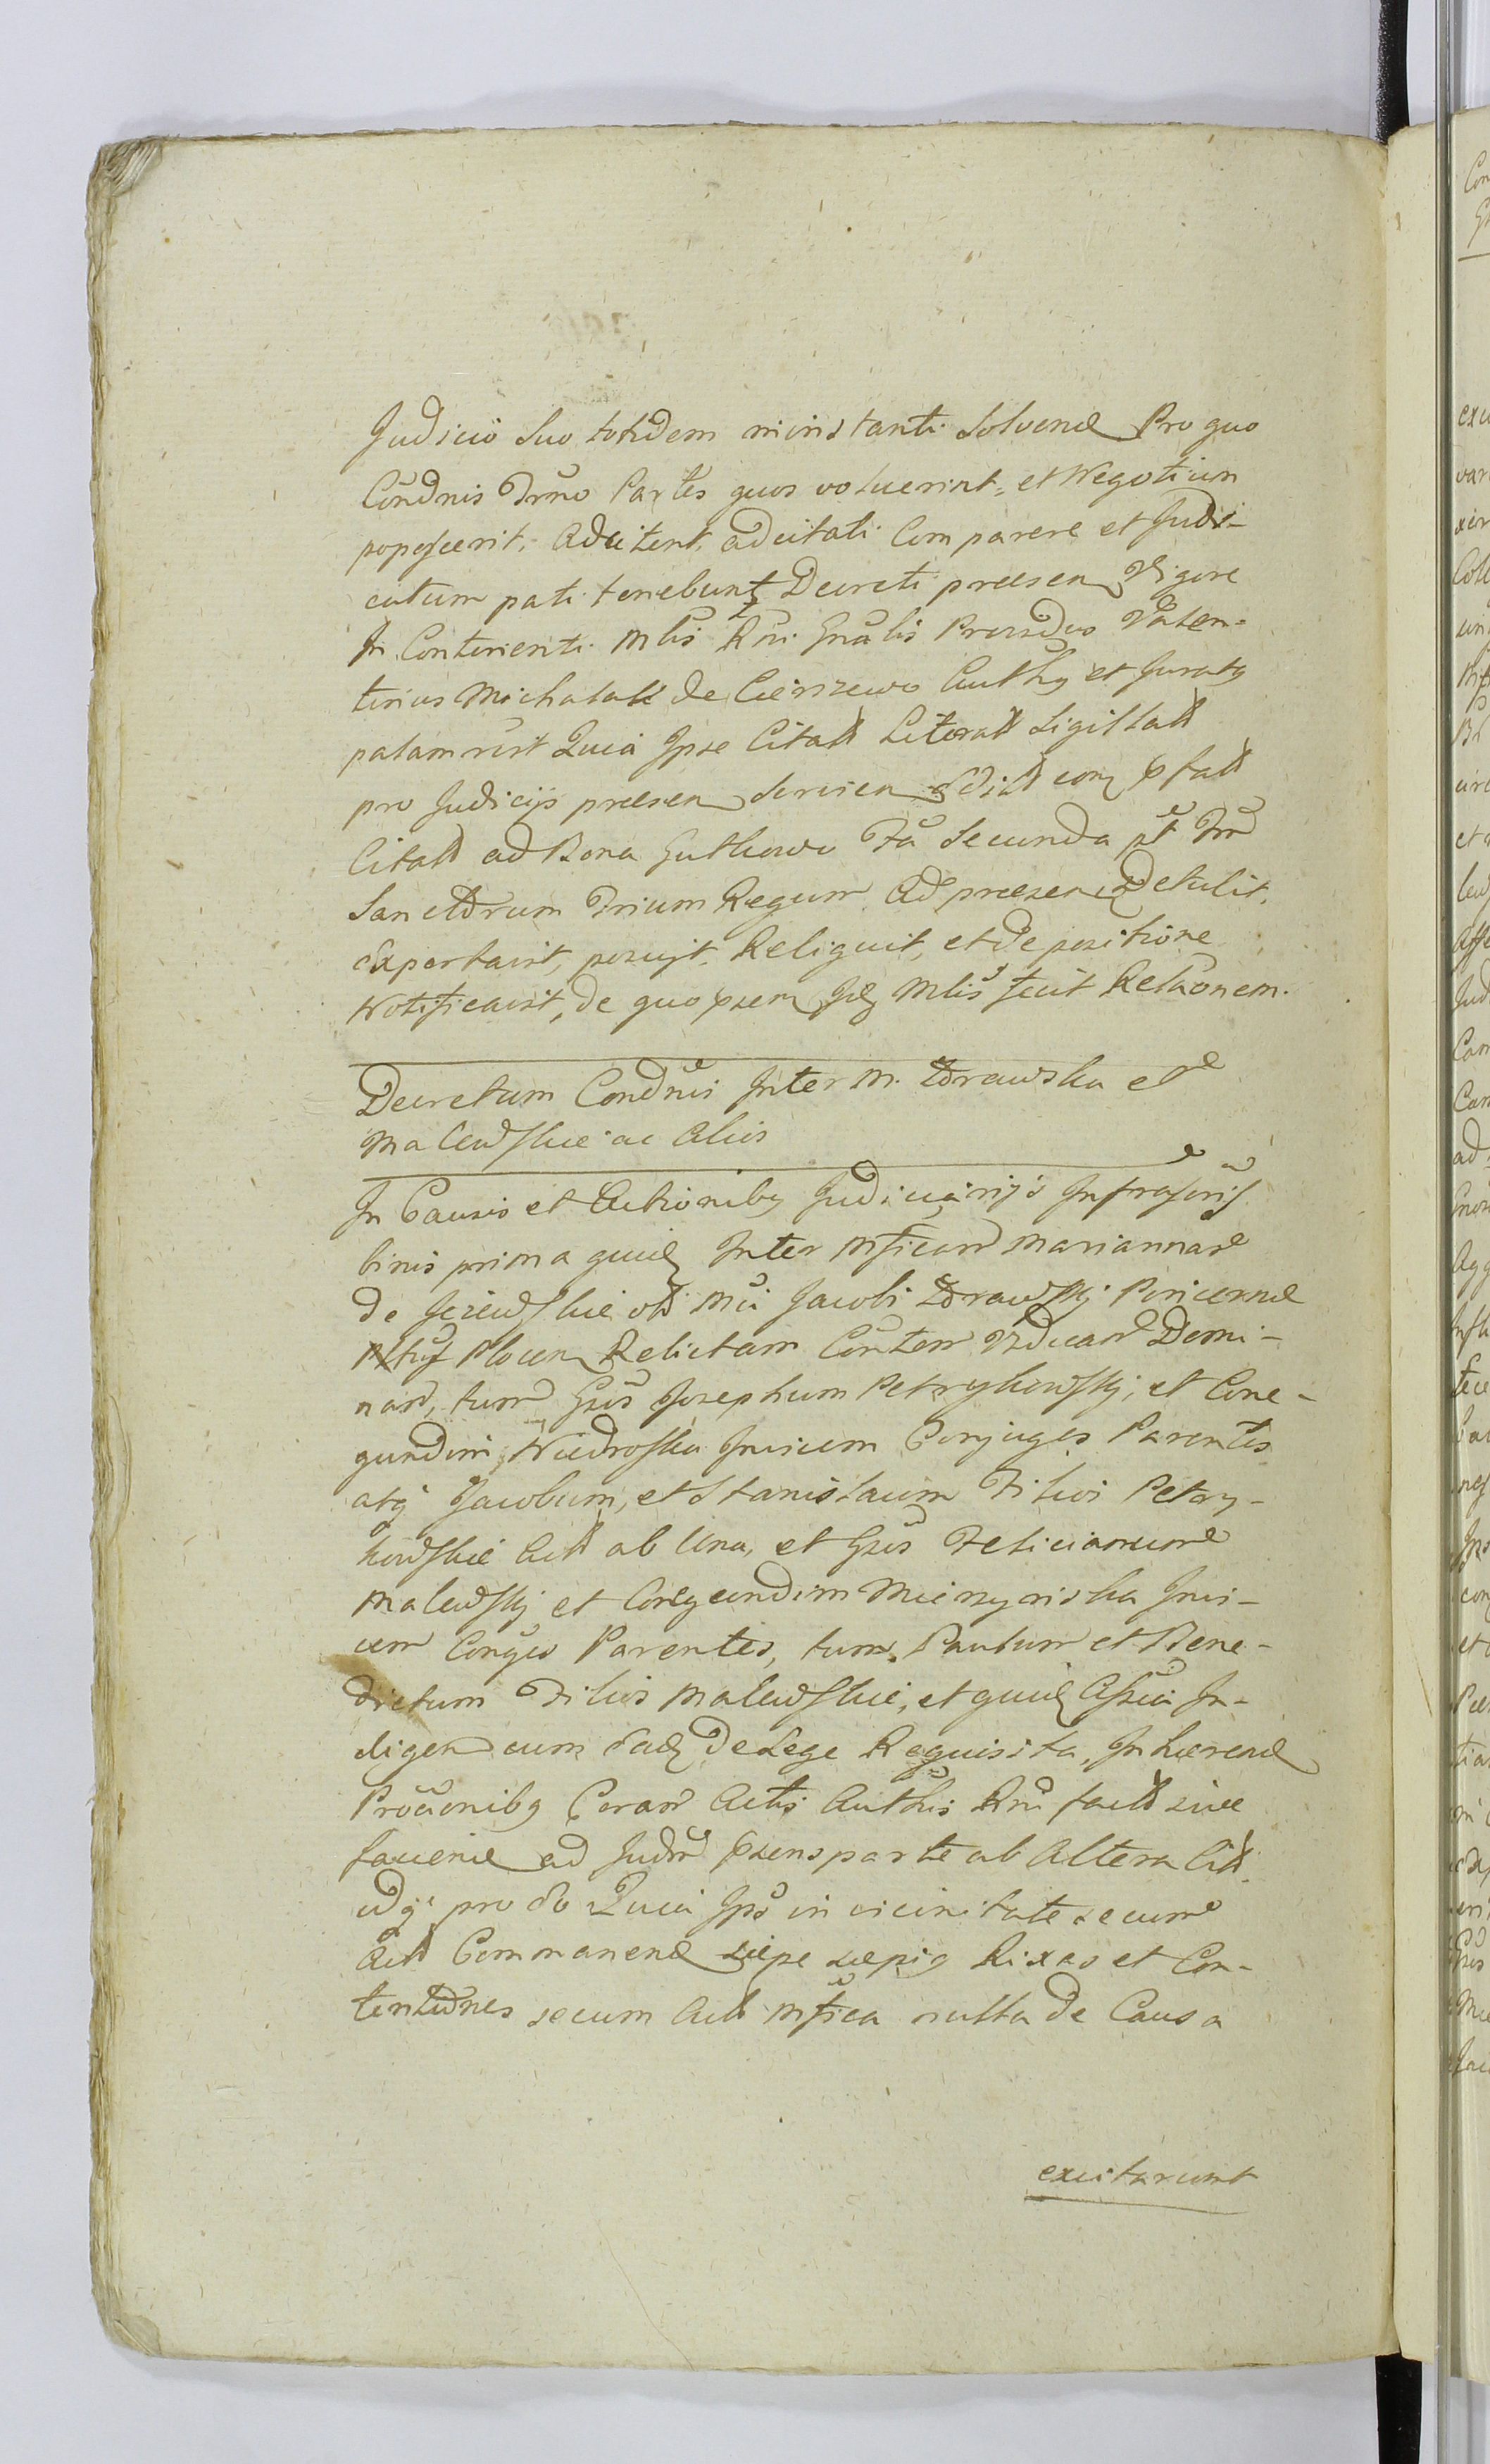 Judicio Suo totidem ministanti Solvend Pro quo
Condnis Trmno Partes quos voluerint, et Negotium
poposcerit, Adcitent, adcitati Comparere et Judi-
catum pati tenebunt Decreti preesen Vigore
In Continenti Mlis Rni Gnalis Providus Valen-
tinus Michalak de Cierszewo Authq et Juratq
palam rcst Quia Ipse Citatt Literatt Sigillatt
pro Judicijs preesen Servien
Citatt ad Bona Gutkowo Fa Secunda pt Frm
Sanctorum Trium Regum Ad preesen Detulit,
Exportavit, posuit, Reliquit, et de positione
Notificavit, de quo psem Mlis fecit Relaonem.
Decretum Condnis Inter M. Zdrawska et
Malewskie ac Alios
In Causis et Actionibq Judiciarijs Infrascris
binis prima quid Inter Mficam Mariannam
de Jezewskie olt Mci Jacobi Zdrawskj Pincernæ
Plocen Relictam Conten Viduam Domi-
nam, tum Gsos Josephum Petrykowskj, et Cone-
gundim Niedroska Invicem Conjuges Parentes
atq Jacobum, et Stanislaum Filios Petry-
kowskie Act ab Una, et Gsos Felicianum
Malewskj et Conegundim Mierzynska Invi-
cem Conges Parentes, tum Paulum et Bene-
dictum Filios Malewskie, et quid In-
digen cum de Lege Requisita, Inhærend
Proaonibq Coram Actis Authis Rni factt sive
faciend ad Judm psens parte ab Altera Citt
idq pro eo Quia Ipsi in vicinitate secum
Act Commanend sæpe sæpiq Rixas et Con-
tentiones secum Act Mfica nulla de Causa
excitarunt